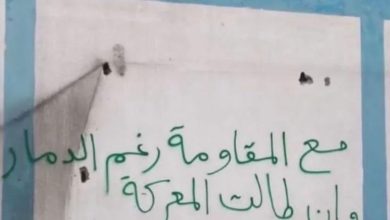 مع المقاومة رغم الدمار
وإن طالت المعركة